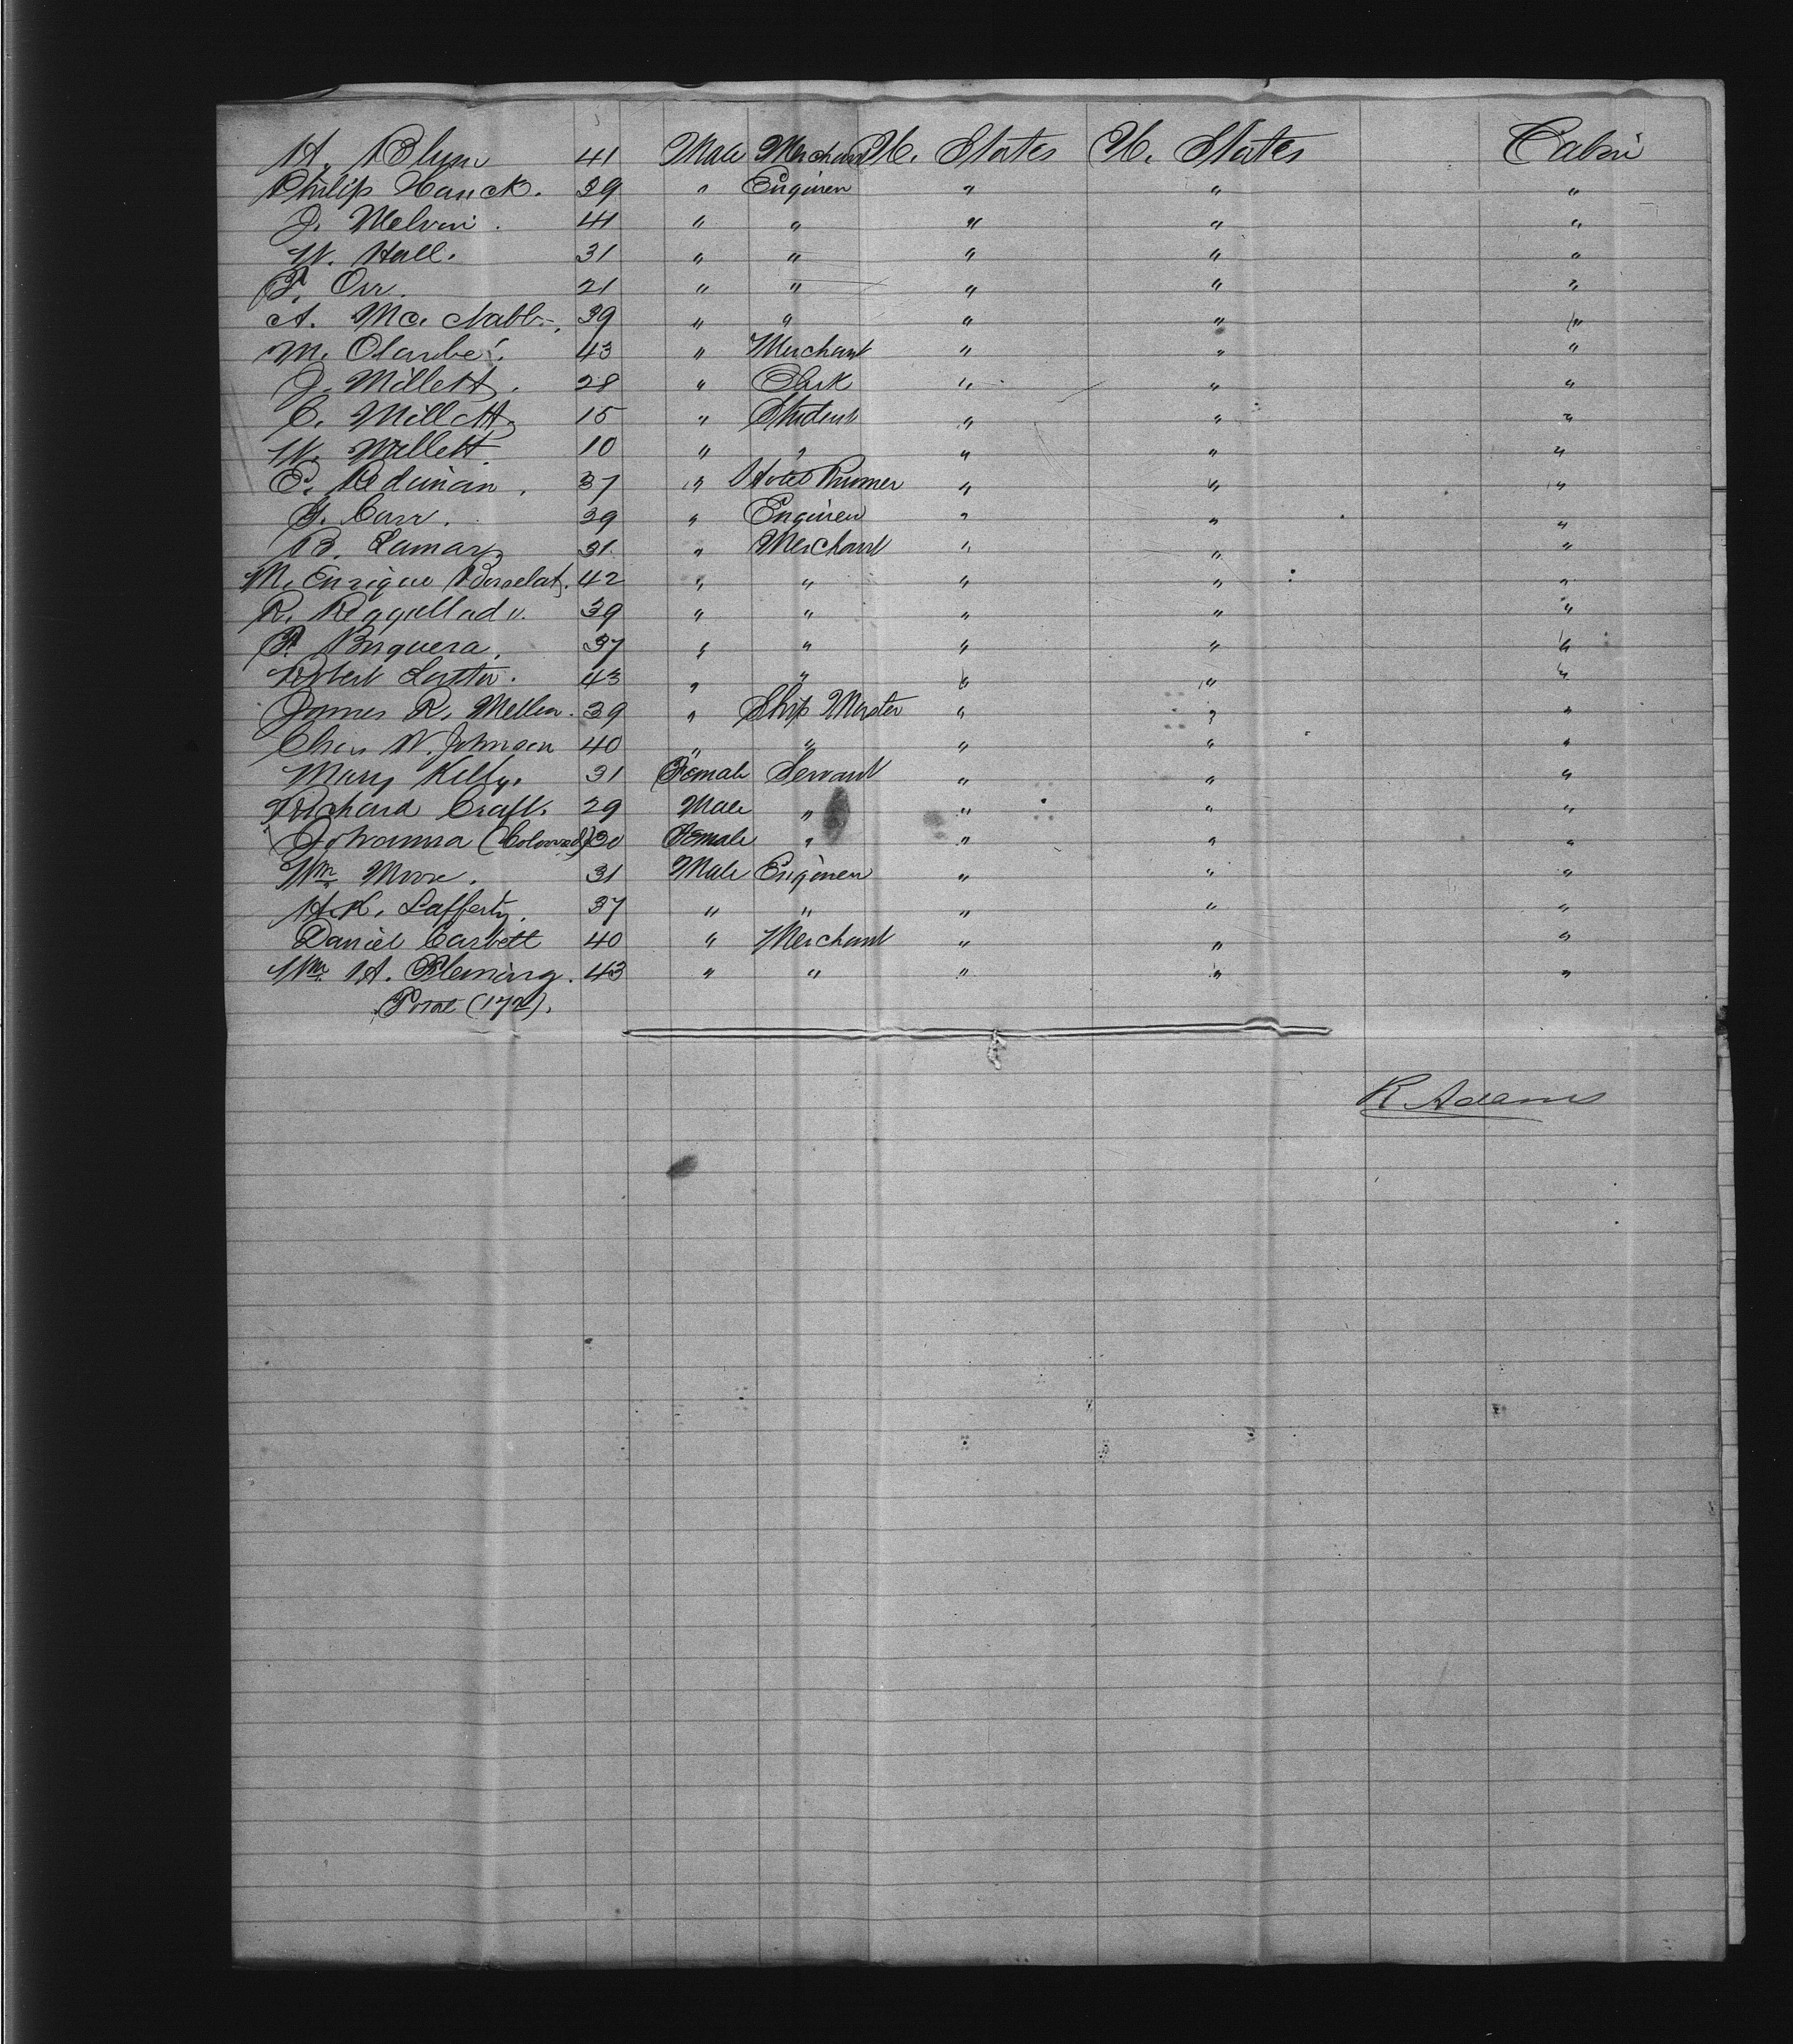 H. Blum 41 Male Merchant U. States U. States Cabin
Philip Hauck. 39 " Engineer " " "
J. Melvin. 41 " " " " "
W. Hall. 31 " " " " "
P. Orr. 21 " " " " "
A. Mc. Nabb. 39 " " " " "
M. 43 " Merchant " " "
J. Millett. 28 " Clerk " " "
C. Millett 15 " Student " " "
W. Millett 10 " " " " "
P. Redman. 37 " Hotel Runner " " "
G. Carr. 39 " Engineer " " "
B. Lamar 31. " Merchant " " "
M. Enrique 42 " " " " "
R. 39 " " " " "
P. 37 " " " " "
Robert 43 " " " " "
James R. 39 " Ship Master " " "
Chas W. Johnson 40 " " " " "
Mary Kelly. 31 Female Servant " " "
Richard Craft. 29 Male " " " "
Johanna (Colored) 30 Female " " " "
Wm Moore. 31 Male Engineer " " "
H. K. Lafferty. 37 " " " " "
Daniel Corbett 40 " Merchant " " "
Wm H. Fleming. 43 " " " " "
Total (172).
R Adams